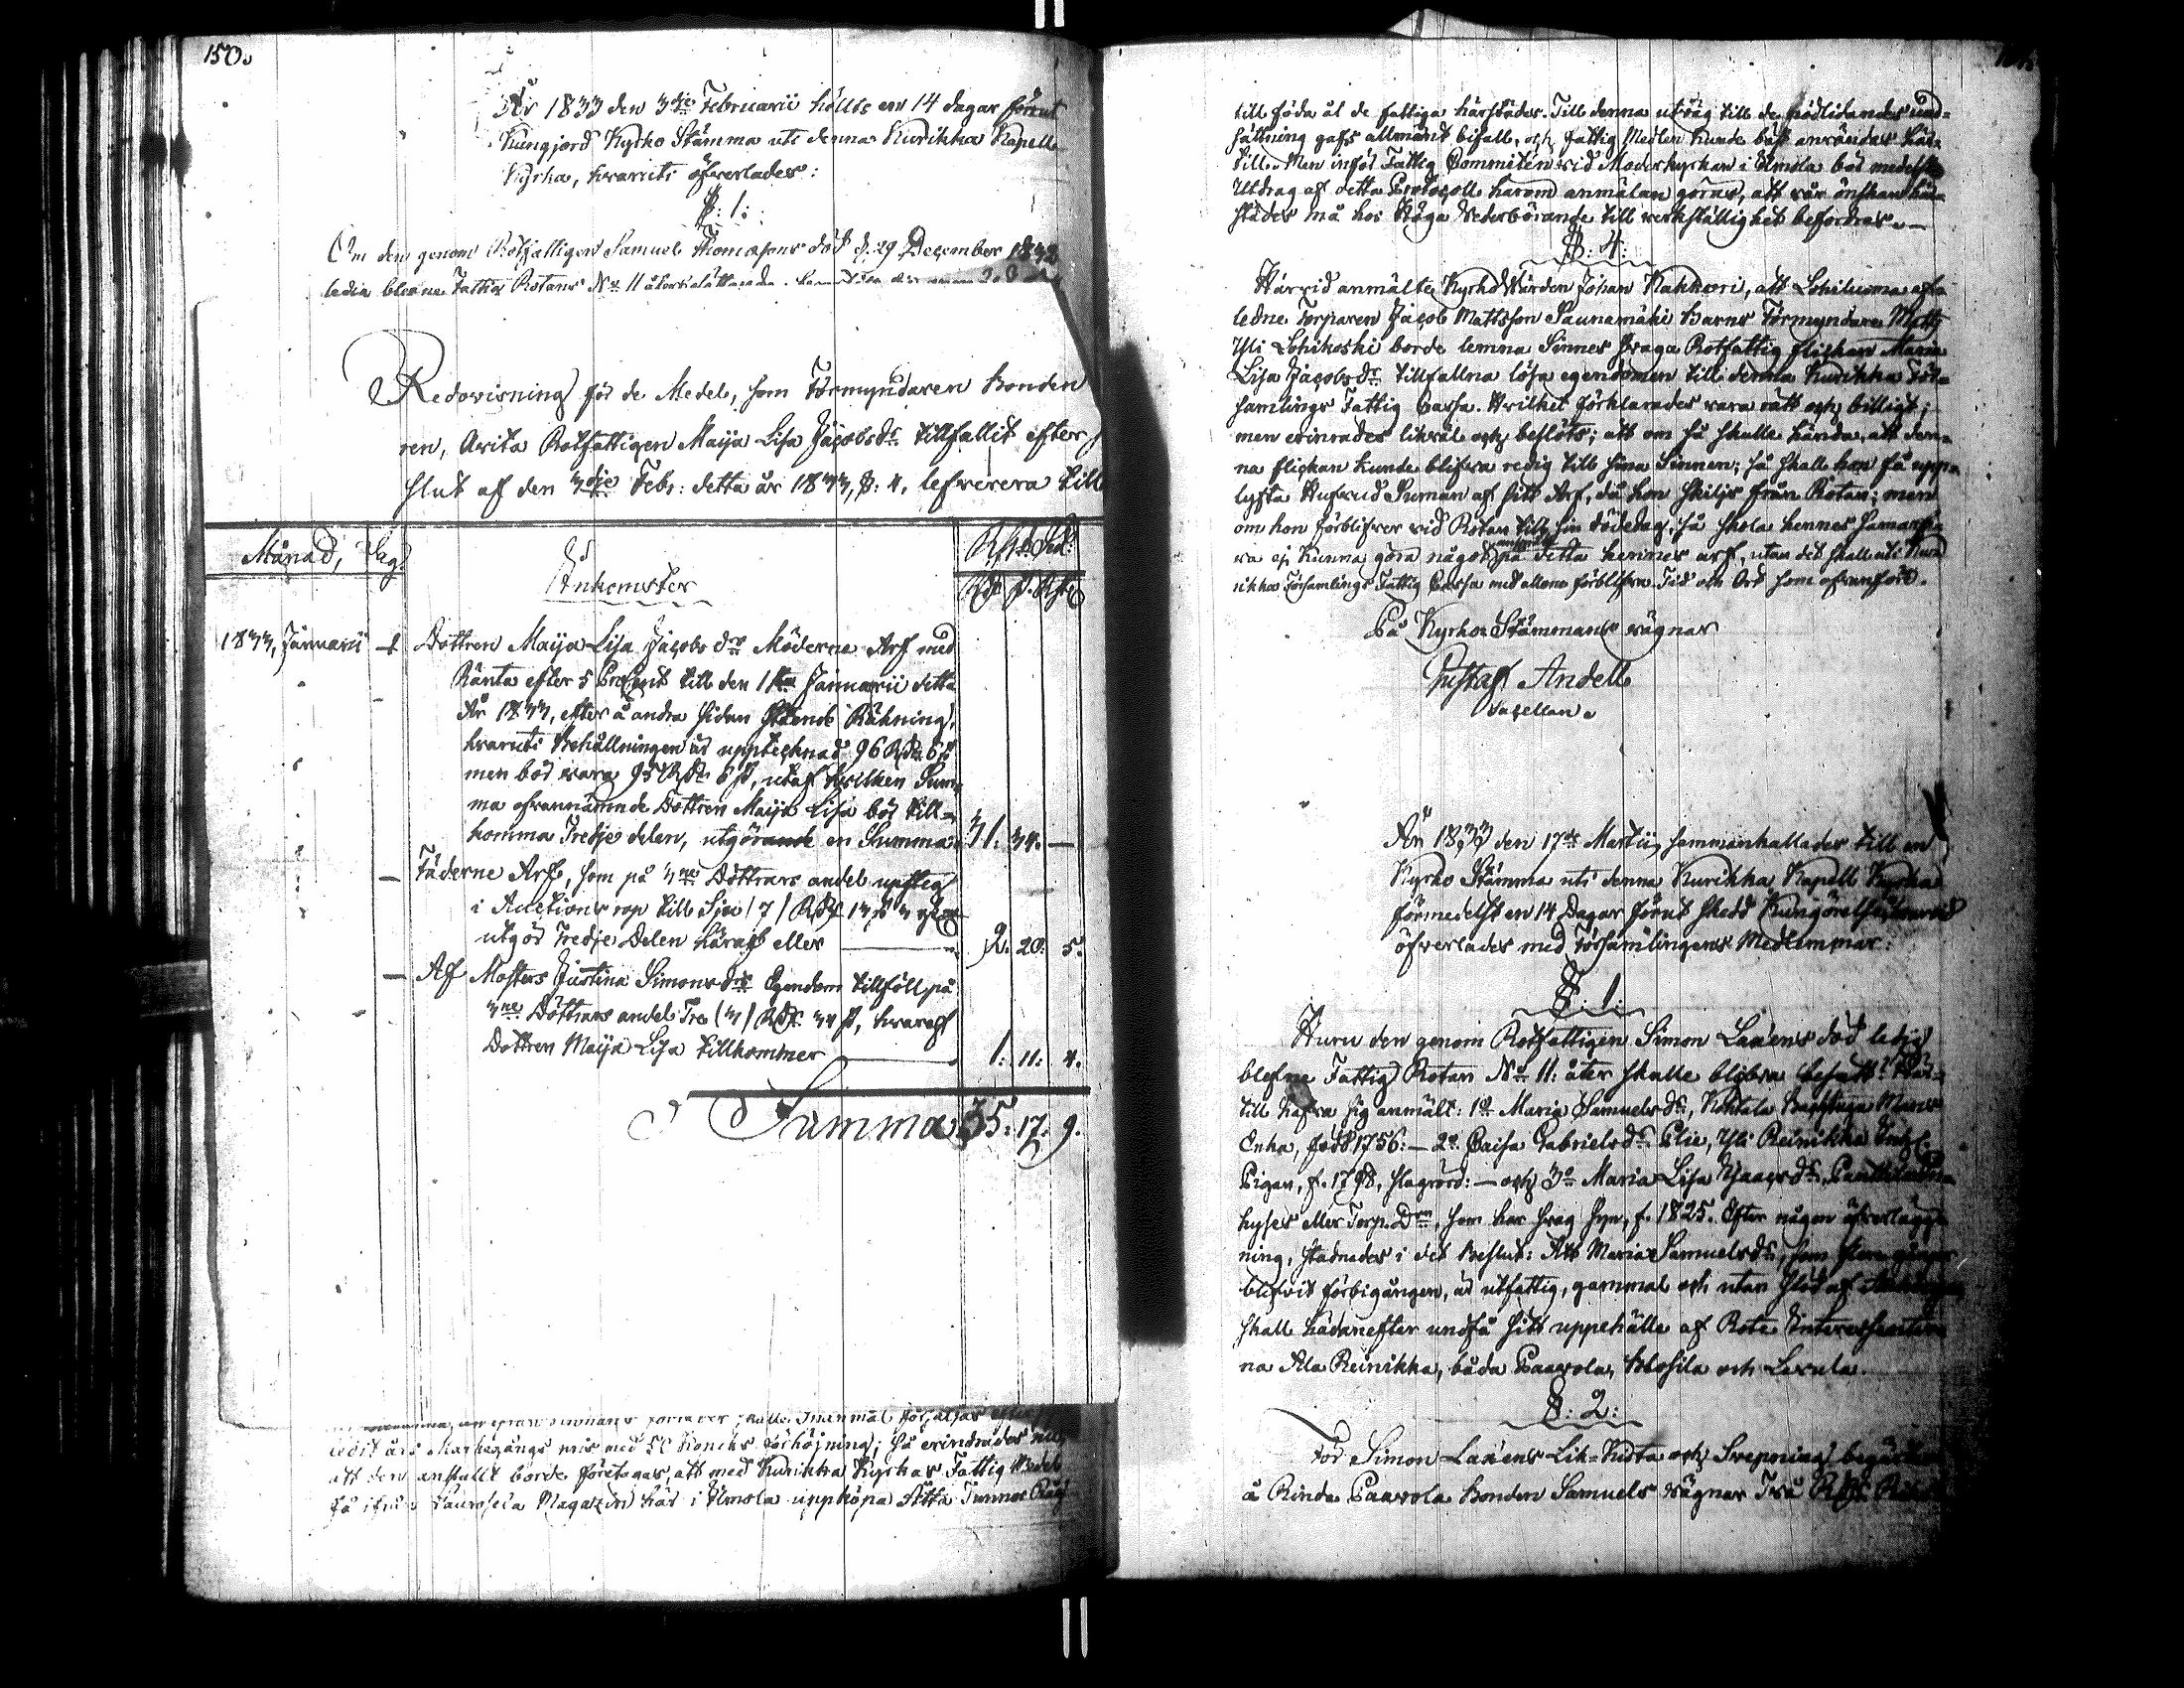 150.
År 1833 den 3die Februarii hölts en 14 dagar förut
Kungjord Kyrko Stämma uti denna Kurikka Kapell
Kyrka, hvaruti öfverlades:
§: 1:
Om den genom Rotfattigen Samuel Thomassons död d. 29 December 1832
ledig blefne Fattig Rotans No 11 återbesättande
Redovisning för de Medel, som Förmyndaren Bonden
ren, Avita Rotfattigen Maija Lisa Jacobsdr tillfallit efter
slut af den 3die Febr: detta år 1833, §: 4, leverera till
Månad, Dag
Inkomster
RdR. Sed:
Rdr ß. Rst.
1833, Januarii 1 Dottren Maija Lisa Jacobsdrs Möderne Arf med
Ränta efter 5 Procent till den 1sta Januarii detta
År 1833, efter å andra sidan stående Räkning,
hvaruti Behållningen är upptecknad 96 Rdr 6 ß
men bör vara 95 Rdr 6 ß, utaf hvilken Sum-
ma ofvannämnde Dottren Maija Lisa bör till-
komma Tredje delen, utgörande en Summa 31. 34. —
— Fäderne Arf, som på 3ne Döttrars andel upsteg
i Auctions rop till Sju /7/ Rdr 13 ß 3
utgör Tredje Delen häraf eller — 2. 20. 5.
— Af Mosters Justina Simonsdrs Egendom tillföll på
3ne Döttrars andel Tre (3) Rdr 34 ß, hvaraf
Dottren Maija Lisa tillkommer — 1: 11: 4.
Summa 35: 17: 9.
ledit års Markegångs pris med 50 Förhöjning; så erindrades
att den anstallt borde företagas, att med Kurikka Kyrkas Fattig Medel
få ifrån Magazin här i Ilmola uppköpa Åtta Tunnor Råg
till föda åt de fattiga härstädes. Till denna utväg till de nödlidandes und-
sättning gafs allmänt bifall, och fattig Medlen kunde bäst användas här-
till. Men inför Fattig Committén vid Moderkyrkan i Ilmola bör medelst
Utdrag af detta Protocoll härom anmälan göras, att vår önskan här-
städes må hos Höga Vederbörande till verkställighet befordras. —
§: 4:
Härvid anmälte Kyrko Värden Johan Kakkori, att Lohiluoma af-
ledne Torparen Jacob Mattsson Saunamäki Barns Förmyndare Matts
Yli Lohikoski borde lemna Sinnes svaga Rotfattig flickan Maria
Lisa Jacobsdr tillfallna lösa egendomen till denna Kurikka För-
samlings Fattig Cassa. Hvilket förklarades vara rätt och billigt;
men erinrades likväl och beslöts; att om så skulle hända, att den-
na flickan kunde blifva redig till sina Sinnen; så skall hon få upp-
lyfta Hufvud Suman af sitt Arf, då hon skiljs från Rotan; men
om hon förblifver vid Rotan till sin dödedag, så skola hennes
ra ej kunna göra något anspråk på detta hennes arf, utan det skall uti Kurikka
rikka Församlings Fattig Cassa med allone förblifva. Tid och Ort som ofvanföre.
På Kyrko-Stämmans vägnar
Gustaf Andell
Sacellan.
År 1833 den 17de Martii, sammankallades till en
Kyrko Stämma uti denna Kurikka Kapell Kyrka
förmedelst en 14 Dagar förut skedd Kungörelse, hvarvid
öfverlades med Församlingens Medlemmar:
§: 1:
Huru den genom Rotfattigen Simon Laxens död ledig
blefne Fattig Rotan No 11: åter skulle blifva besatt?
till hafva sig anmält: 1o Maria Samuelsdr, Kohtala Backstuga
Enka, född 1756: — 2o Caisa Gabrielsdr Elie, Yli Reinikka
Pigan, f. 1798, slagrörd: — och 3o Maria Lisa Isaacsdr,
hyses eller Torp. Drn, som har svag syn, f. 1825. Efter någon öfverlägg-
ning, stadnades i det Beslut: Att Maria Samuelsdr, som flere gånger
blifvit förbigången, är utfattig, gammal och utan stöd af
skall hädanefter undfå sitt uppehälle af Rote Interessenter-
na Ala Reinikka, båda Paavola, Klosila och Lexula.
§: 2:
För Simon Laxens Lik-Kista och Svepning begärtes
å Rinda Paavola Bonden Samuels vägnar Två Rdr